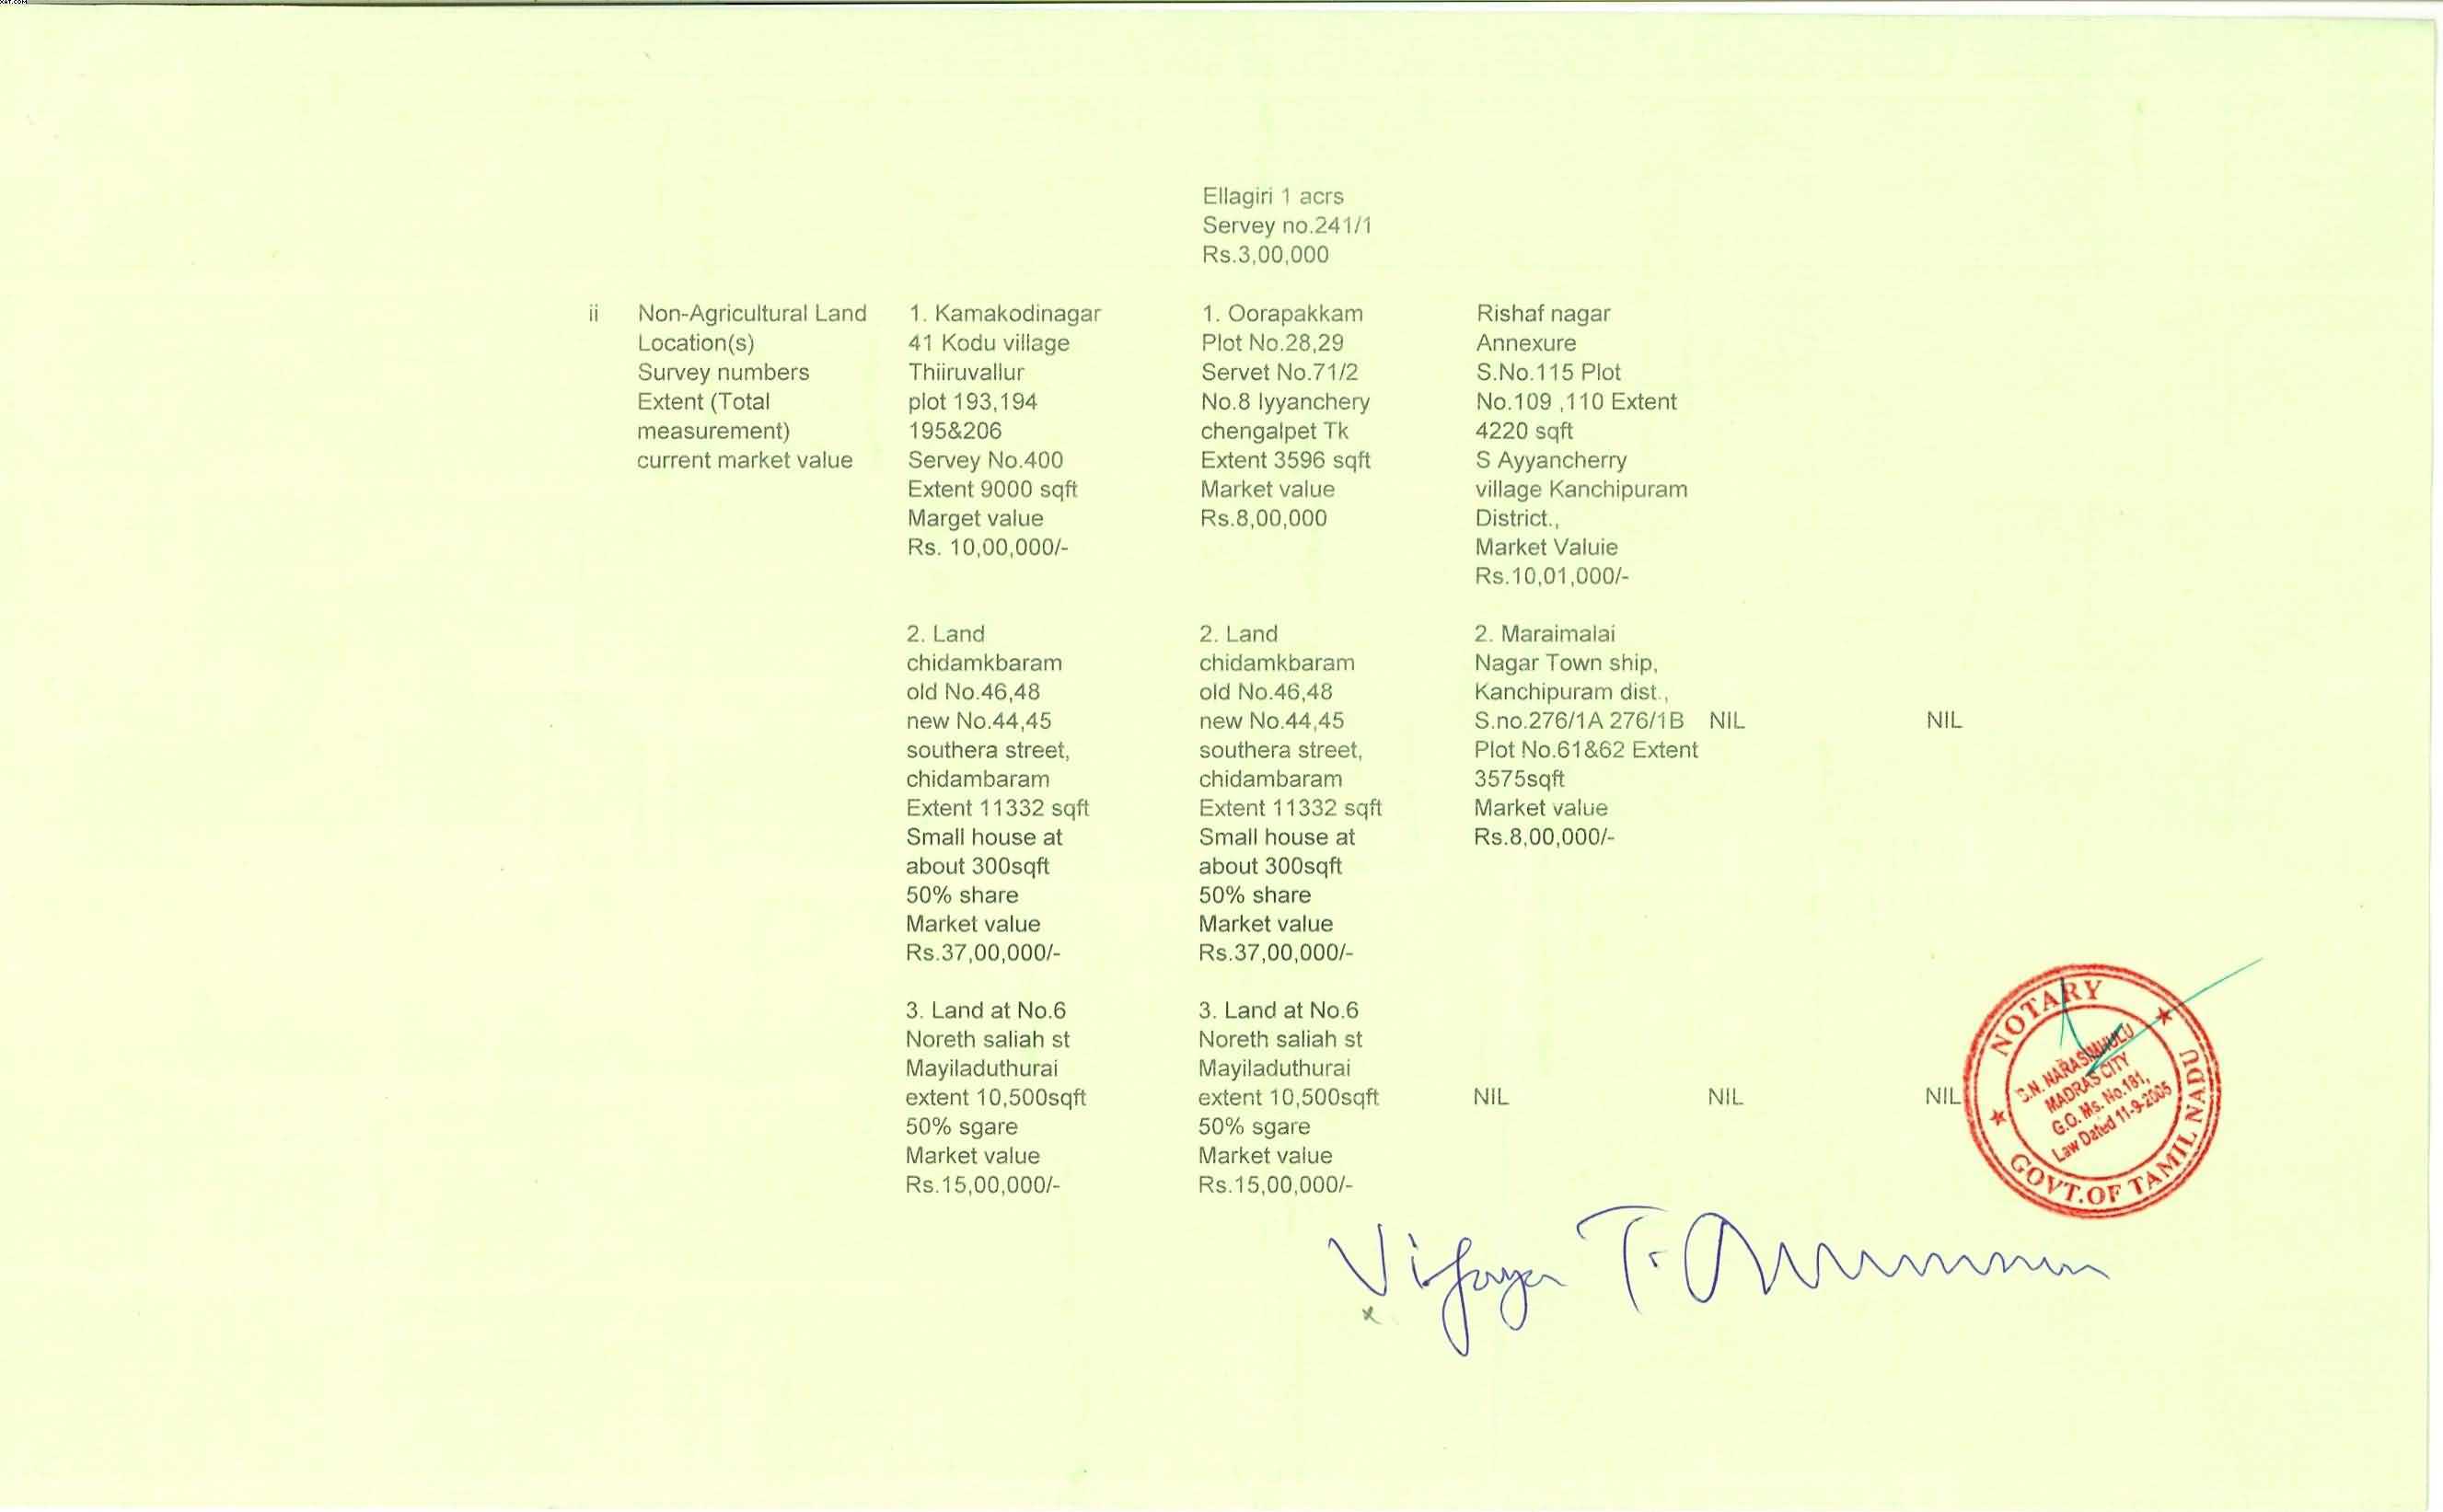 Ellagiri 1 acrs
Servey no.241/1
Rs.3,00,000
ii Non-Agricultural Land
Location(s)
Survey numbers
Extent (Total
measurement)
current market value
1. Kamakodinagar
41 Kodu village
Thiiruvallur
plot 193,194
195&206
Servey No.400
Extent 9000 sqft
Marget value
Rs. 10,00,000/-
1. Oorapakkam
Plot No.28,29
Servet No.71/2
No.8 Iyyanchery
chengalpet Tk
Extent 3596 sqft
Market value
Rs.8,00,000
Rishaf nagar
Annexure
S.No.115 Plot
No.109 ,110 Extent
4220 sqft
S Ayyancherry
village Kanchipuram
District.,
Market Valuie
Rs.10,01,000/-
2. Land
chidamkbaram
old No.46,48
new No.44,45
southera street,
chidambaram
Extent 11332 sqft
Small house at
about 300sqft
50% share
Market value
Rs.37,00,000/-
2. Land
chidamkbaram
old No.46,48
new No.44,45
southera street,
chidambaram
Extent 11332 sqft
Small house at
about 300sqft
50% share
Market value
Rs.37,00,000/-
2. Maraimalai
Nagar Town ship,
Kanchipuram dist.,
S.no.276/1A 276/1B
Plot No.61&62 Extent
3575sqft
Market value
Rs.8,00,000/-
NIL
NIL
3. Land at No.6
Noreth saliah st
Mayiladuthurai
extent 10,500sqft
50% sgare
Market value
Rs.15,00,000/-
3. Land at No.6
Noreth saliah st
Mayiladuthurai
extent 10,500sqft
50% sgare
Market value
Rs.15,00,000/-
NIL
NIL
NIL
NOTARY
NARASIMHULU
MADRAS CITY
G.O. Ms. No.181,
Law Dated 11-9-2005
GOVT.OF TAMIL NADU
Vijaya T.